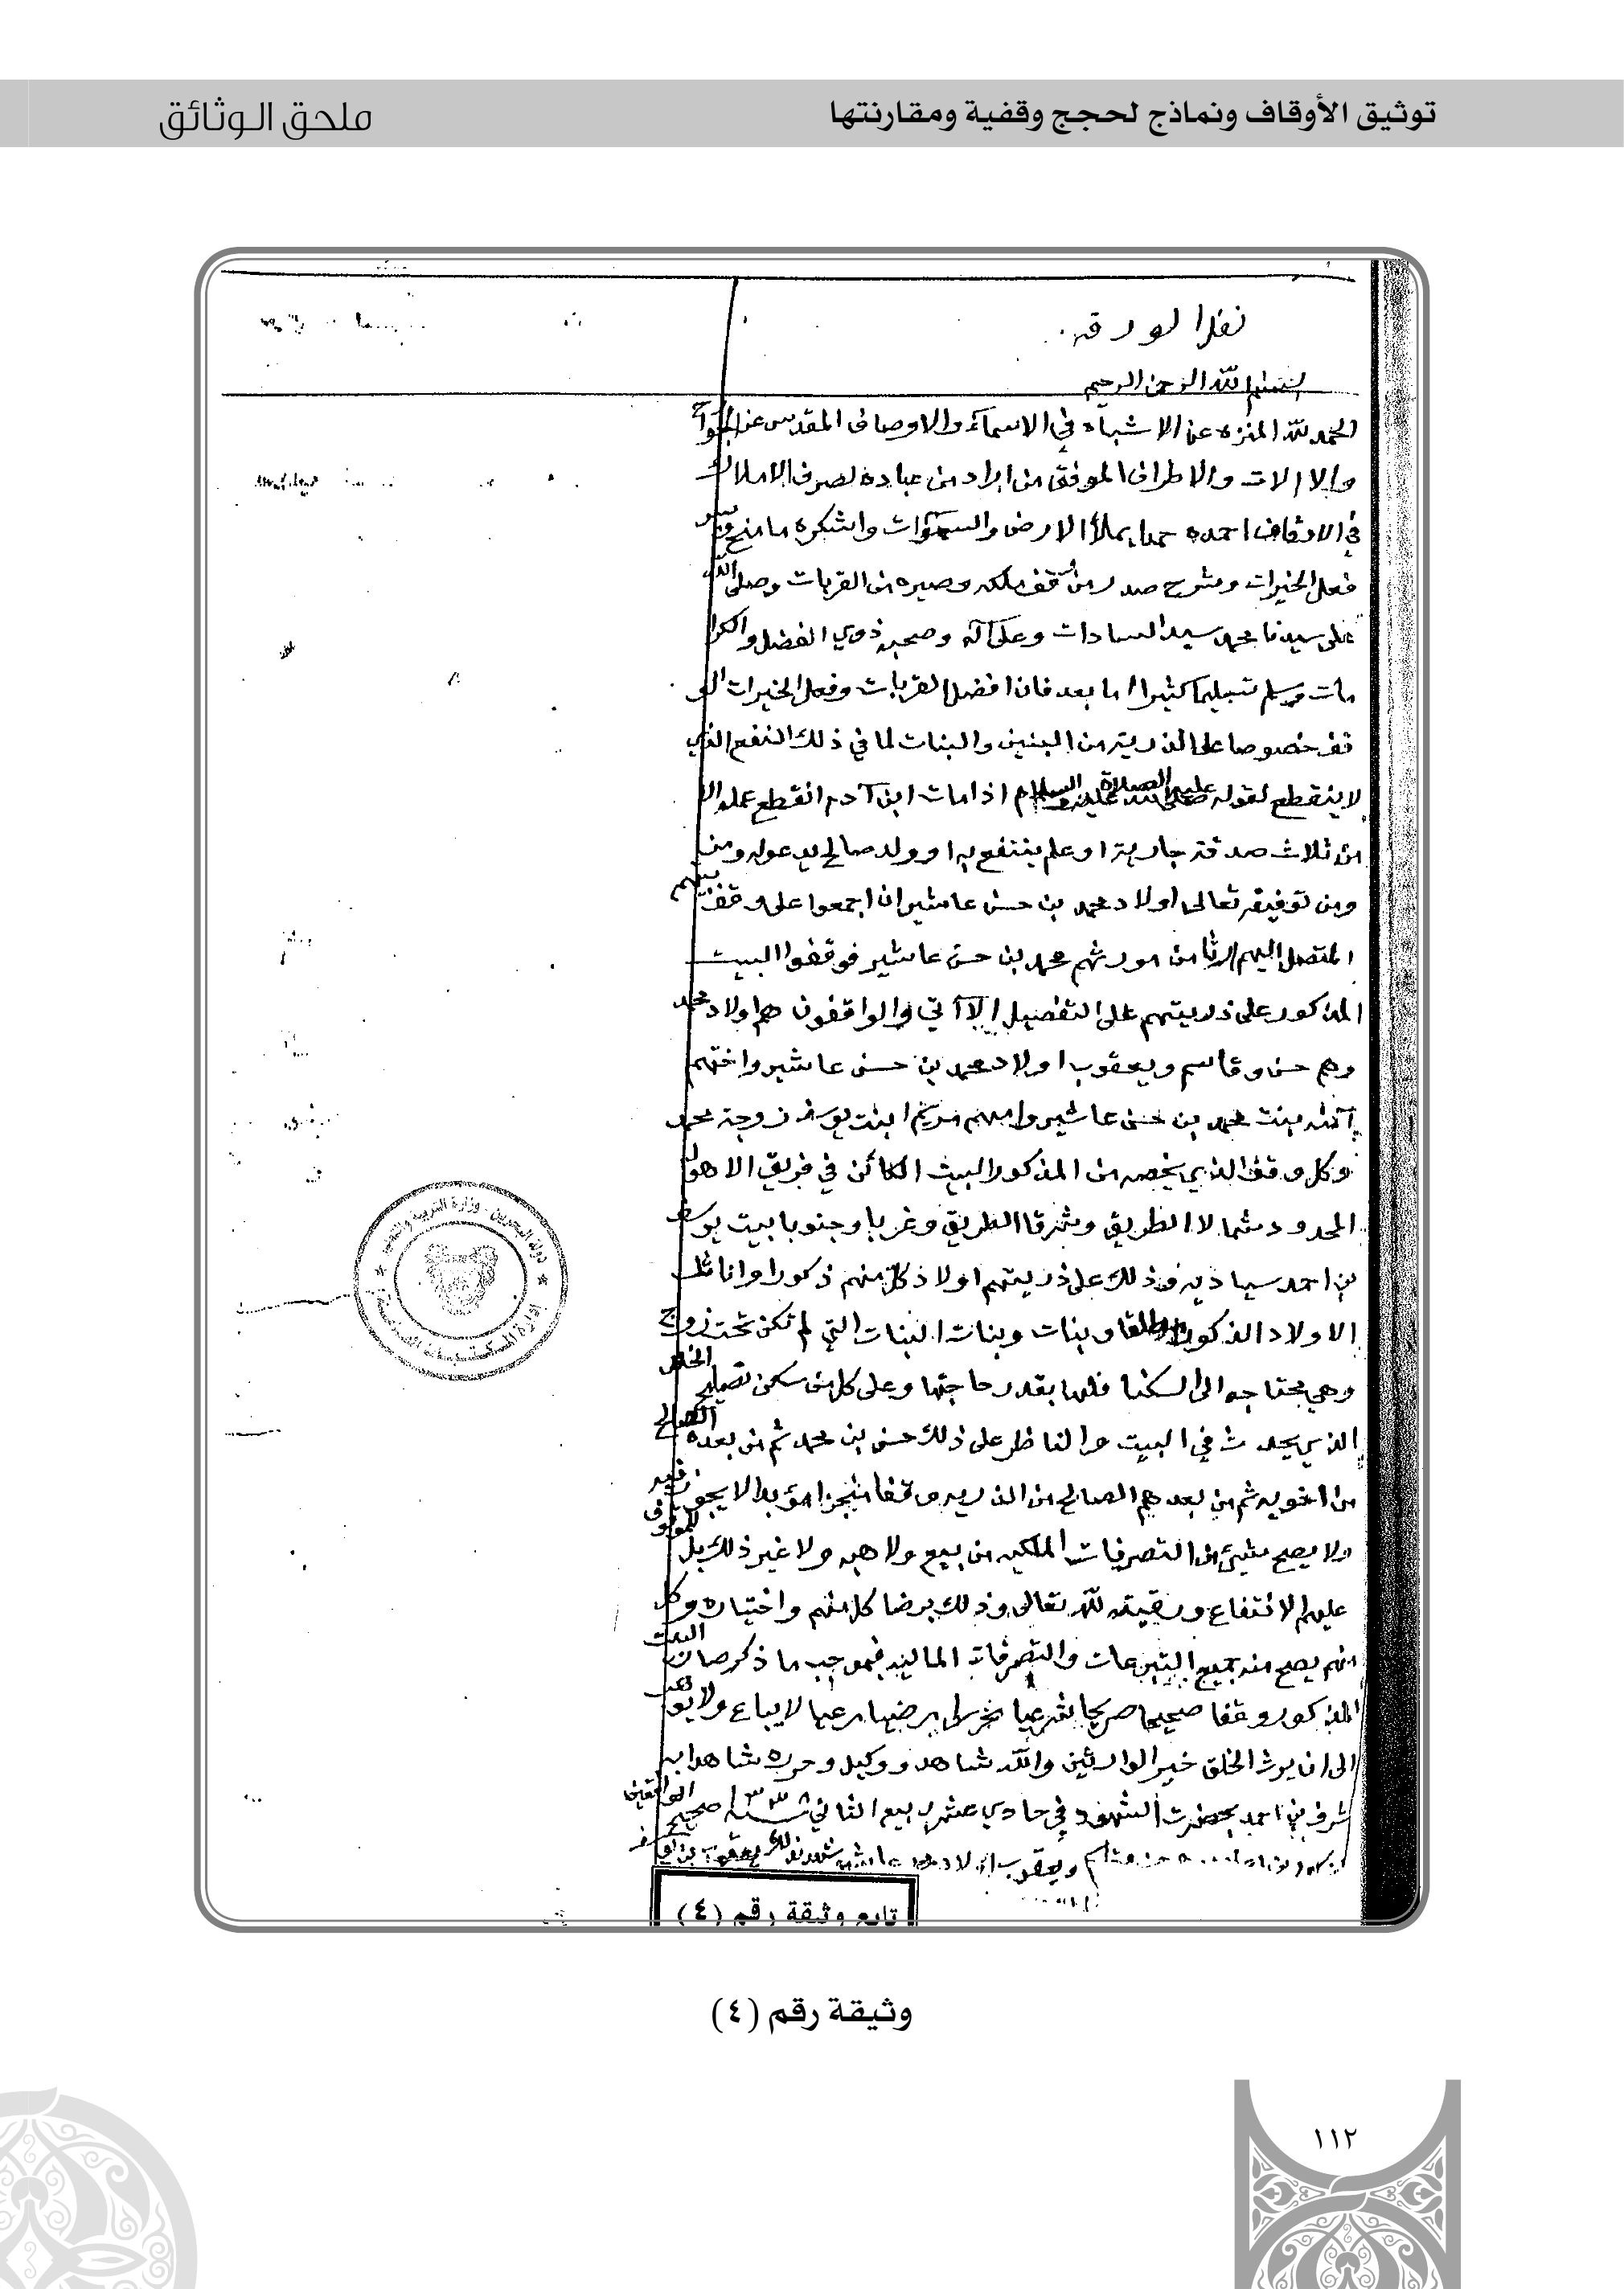 توثيق الأوقاف ونماذج لحجج وقفية ومقارنتها
ملحق الوثائق
الورقة
بسم الله الرحمن الرحيم
الحمد لله المنزه عن الاشباه في الاسماء والاوصاف المقدس عن
والاطراف الموفق من اراد من عباده لصرف الاملاك
في الاوقاف احمده حمدا يملأ الارض والسموات واشكره ما منح
فعل الخيرات وشرح صدر من وقف ملكه وصيره من القربات وصلى الله
على سيدنا محمد سيد السادات وعلى آله وصحبه ذوي الفضل والكرا
مات وسلم تسليما كثيرا اما بعد فان افضل القربات وفعل الخيرات الو
قف خصوصا على الذرية من البنين والبنات لما في ذلك النفع الذي
لا ينقطع لقوله عليه الصلاة والسلام اذا مات ابن آدم انقطع عمله الا
من ثلاث صدقة جارية او علم ينتفع به او ولد صالح يدعو له ومن
ومن توفيقه تعالى اولاد محمد بن حسن عاشير ان اجمعوا على وقف بيتهم
المتصل اليهم ارثا من مورثهم محمد بن حسن عاشير فوقفوا البيت
المذكور على ذريتهم على التفصيل الآتي والواقفون هم اولاد محمد
وهم حسن وقاسم ويعقوب اولاد محمد بن حسن عاشير واختهم
آمنه بنت محمد بن حسن عاشير وامهم مريم ابنت يوسف زوجة محمد
وكل وقف الذي يخصه من المذكور البيت الكائن في فريق الاهوله
المحدود شمالا الطريق وشرقا الطريق وغربا وجنوبا بيت يوسف
بن احمد سيادي وذلك على ذريتهم اولاد كل منهم ذكورا واناثا
الاولاد الذكور مطلقا وبنات وبنات البنات التي لم تكن تحت زوج
وهي محتاجه الى السكنا فلها بقدر حاجتها وعلى كل من سكن تصليح الخلل
الذي يحدث في البيت والناظر على ذلك حسن بن محمد ثم من بعده الصالح
من اخويه ثم من بعدهم الصالح من الذريه وقفا منجزا مؤبدا لا يجوز فيه
ولا يصح شيئ من التصرفات الملكيه من بيع ولا هبه ولا غير ذلك بل للموقوف
عليهم الانتفاع ورقبته لله تعالى وذلك برضا كل منهم واختياره وكل
منهم يصح منه جميع التبرعات والتصرفات الماليه فبموجب ما ذكر صار البيت
المذكور وقفا صحيحا صريحا شرعيا مرعيا لا يباع ولا
الى ان يرث الخلق خير الوارثين والله شاهد ووكيل وحرره شاهدا به
شرف بن احمد بحضرت الشهود في حادي عشر ربيع الثاني سنة ١٣٣٣ صحيح الواقفين
ويعقوب اولاد محمد عاشير شهد بذلك يعقوب بن يوسف
دولة البحرين - وزارة التربية والتعليم
إدارة المكتبات العامة
تابع وثيقة رقم (٤)
وثيقة رقم (٤)
١١٢